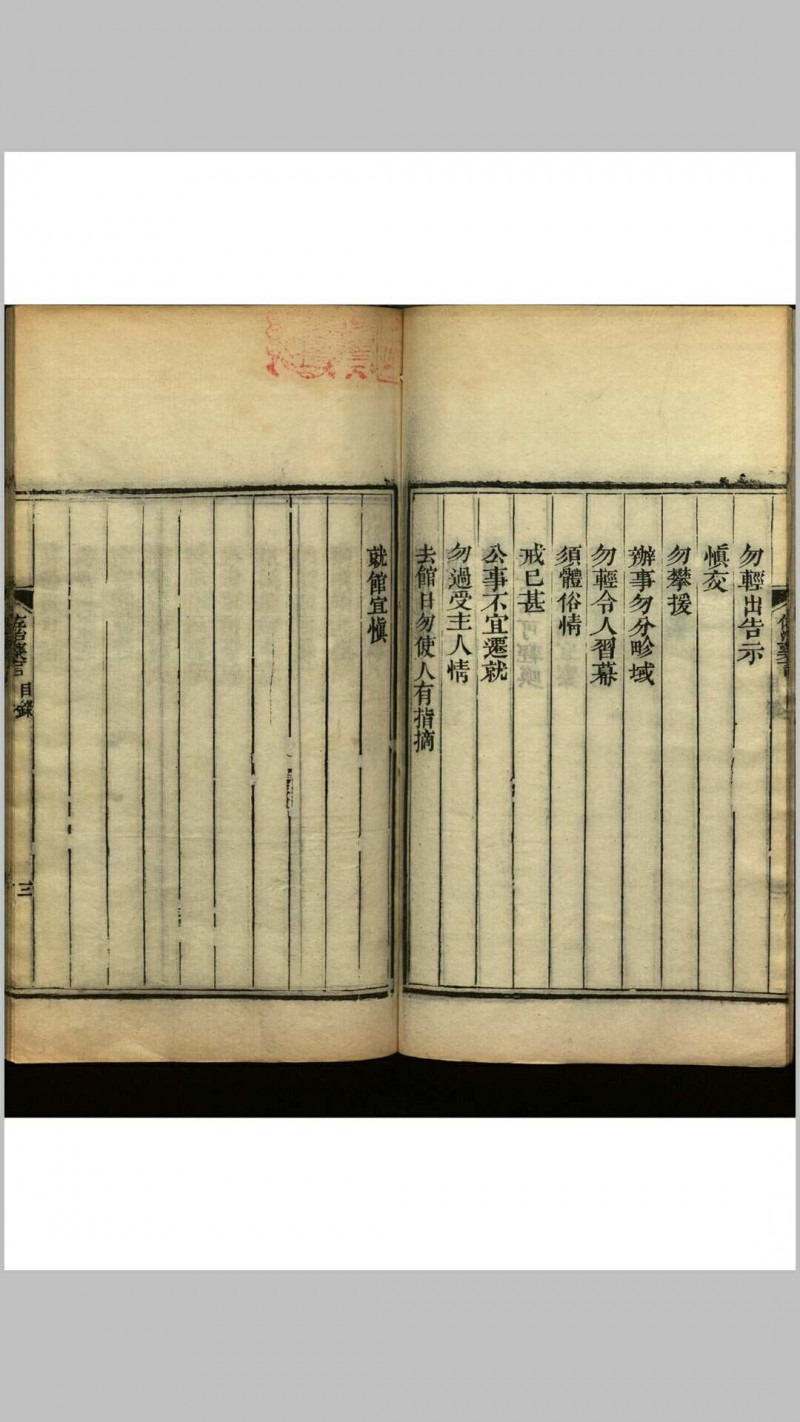 勿輕出告示
慎交
勿攀援
辦事勿分畛域
勿輕令人習幕
須體俗情
戒已甚
公事不宜遷就
勿過受主人情
去館日勿使人有指摘
就館宜慎
目錄
三